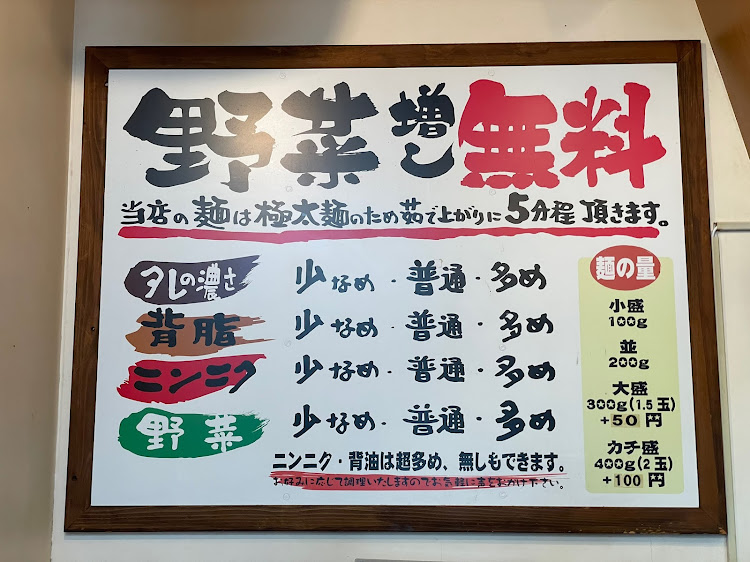 野菜増し無料
当店の麺は極太麺のため茹で上がりに5分程頂きます。
タレの濃さ 少なめ・普通・多め
背脂 少なめ・普通・多め
ニンニク 少なめ・普通・多め
野菜 少なめ・普通・多め
ニンニク・背油は超多め、無しもできます。
お好みに応じて調理いたしますのでお気軽に声をおかけ下さい。
麺の量
小盛
100g
並
200g
大盛
300g(1.5玉)
+50円
カチ盛
400g(2玉)
+100円